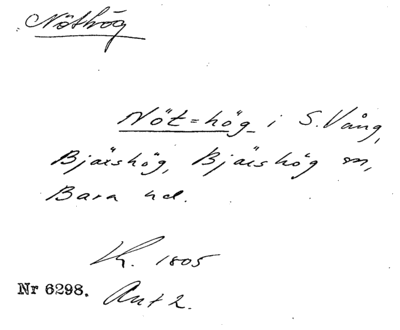 Nöthög
Nöt=hög i S. Vång,
Bjärshög, Bjärshög sn,
Bara hd.
Lh. 1805
Nr 6298. Akt 2.